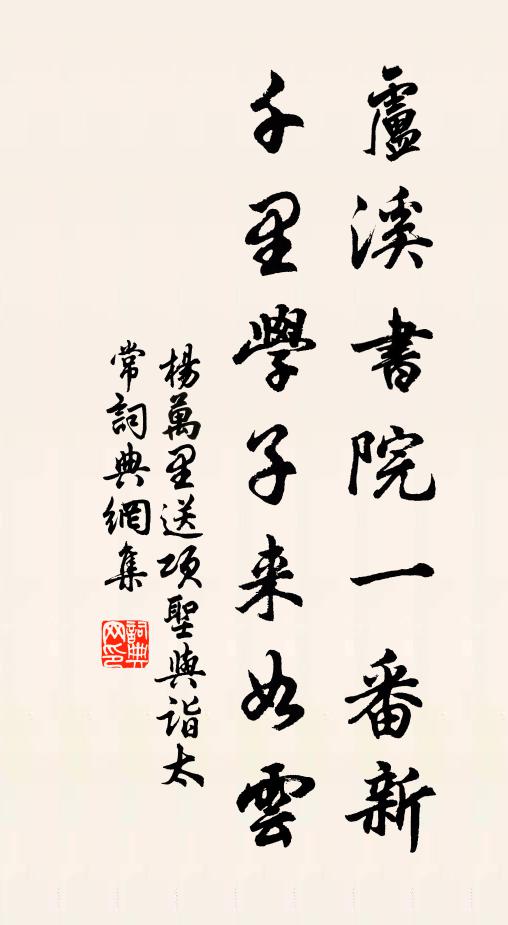 盧溪書院一番新
千里學子来如雲
楊萬里送項聖與詣太
常詞典網集
詞典
网印